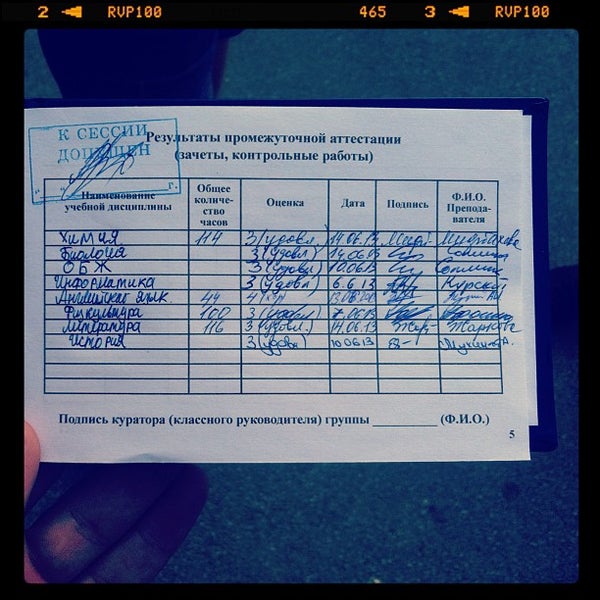 2 RVP100 465 3 RVP100
К СЕССИИ
ДОПУЩЕН
" " г.
Результаты промежуточной аттестации
(зачеты, контрольные работы)
Наименование учебной дисциплины Общее количе-ство часов Оценка Дата Подпись Ф.И.О. Препода-вателя
Химия 114 3 (удовл.) 14.06.13
Биология 3 (удовл) 14.06.13
ОБЖ 3 (удовл) 10.06.13
Информатика 3 (удовл) 6.6.13 Курской
Английский язык. 44 4
Физкультура 100 3 (удовл) 7.06.13
Литература 116 3 (удовл.) 14.06.13 Жаркова
История 3 (удовл) 10.06.13
Подпись куратора (классного руководителя) группы (Ф.И.О.)
5